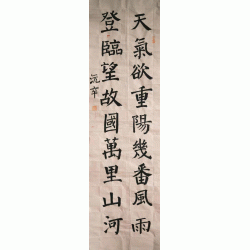 天氣欲重陽幾番風雨
登臨望故國萬里山河